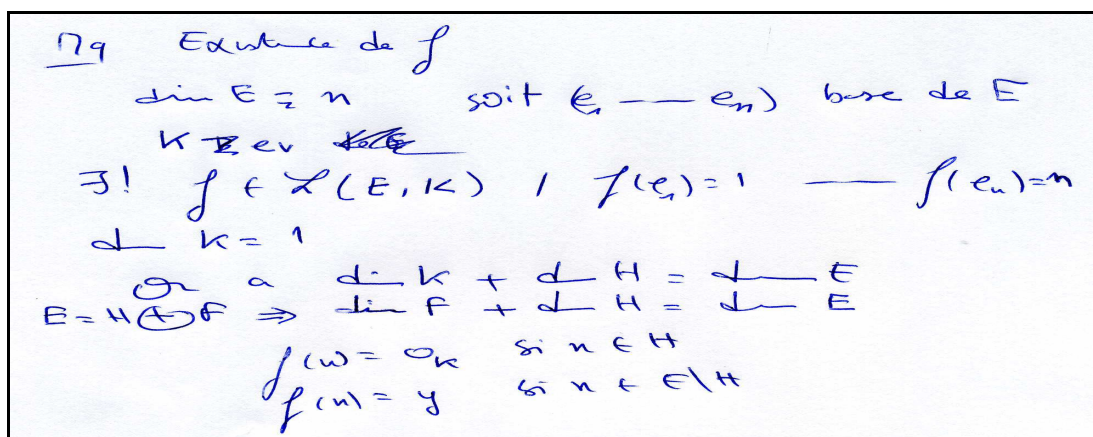 Mq Existence de f
dim E = n soit (e₁ —— eₙ) base de E
K ev
∃! f ∈ ℒ(E, K) / f(e₁) = 1 —— f(eₙ) = n
d— K = 1
On a dim K + d— H = d— E
E = H ⊕ F ⇒ dim F + d— H = d— E
f(x) = 0_K si x ∈ H
f(x) = y si x ∈ E\H